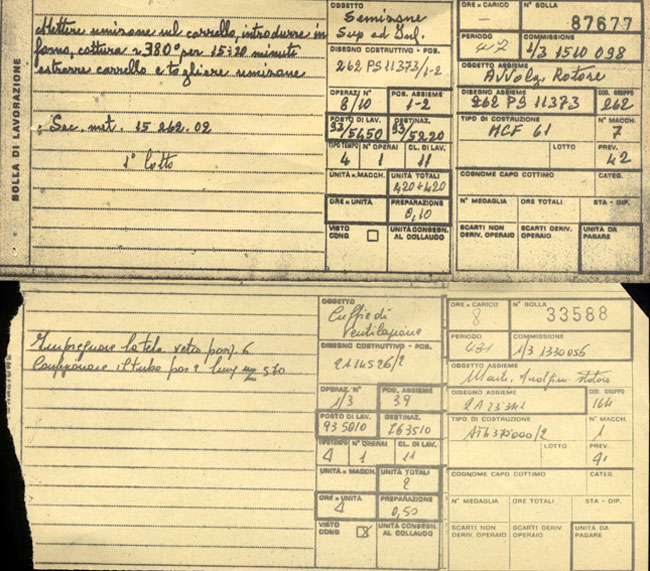 BOLLA DI LAVORAZIONE
Mettere semizone sul carrello, introdurre in
forno, cottura ~ 380° per 15÷20 minuti
estrarre carrello e togliere semizone
Sec. met. 15 262.02
1° lotto
OGGETTO
Semizone
Sup ed Inf.
DISEGNO COSTRUTTIVO - POS.
262 PS 11373/1-2
OPERAZ. N°
8/10
POS. ASSIEME
1-2
POSTO DI LAV.
93/5450
DESTINAZ.
93/5220
TIPO TEMPO
4
N° OPERAI
1
CL. DI LAV.
11
UNITÀ × MACCH.
UNITÀ TOTALI
420+420
ORE × UNITÀ
PREPARAZIONE
0,10
VISTO
CONG
UNITÀ CONSEGN.
AL COLLAUDO
ORE × CARICO
-
N° BOLLA
87677
PERIODO
42
COMMISSIONE
1/3 1510 098
OGGETTO ASSIEME
Avvolg. Rotore
DISEGNO ASSIEME
262 PS 11373
COD. GRUPPO
262
TIPO DI COSTRUZIONE
MCF 61
N° MACCH.
7
LOTTO
PREV.
42
COGNOME CAPO COTTIMO
CATEG.
N° MEDAGLIA
ORE TOTALI
STA - DIP.
SCARTI NON
DERIV. OPERAIO
SCARTI DERIV.
OPERAIO
UNITÀ DA
PAGARE
Impregnare la tela vetro pos. 6
Componare il tubo pos 2 lung 570
OGGETTO
Cuffie di
ventilazione
DISEGNO COSTRUTTIVO - POS.
2A14526/2
OPERAZ. N°
1/3
POS. ASSIEME
39
POSTO DI LAV.
935010
DESTINAZ.
763510
4
N° OPERAI
1
CL. DI LAV.
11
UNITÀ × MACCH.
UNITÀ TOTALI
2
ORE × UNITÀ
4
PREPARAZIONE
0,50
VISTO
CONG
X
UNITÀ CONSEGN.
AL COLLAUDO
ORE × CARICO
8
N° BOLLA
33588
PERIODO
481
COMMISSIONE
1/3 1330056
OGGETTO ASSIEME
Rotore
DISEGNO ASSIEME
COD. GRUPPO
164
TIPO DI COSTRUZIONE
N° MACCH.
1
LOTTO
PREV.
COGNOME CAPO COTTIMO
CATEG.
N° MEDAGLIA
ORE TOTALI
STA - DIP.
SCARTI NON
DERIV. OPERAIO
SCARTI DERIV
OPERAIO
UNITÀ DA
PAGARE